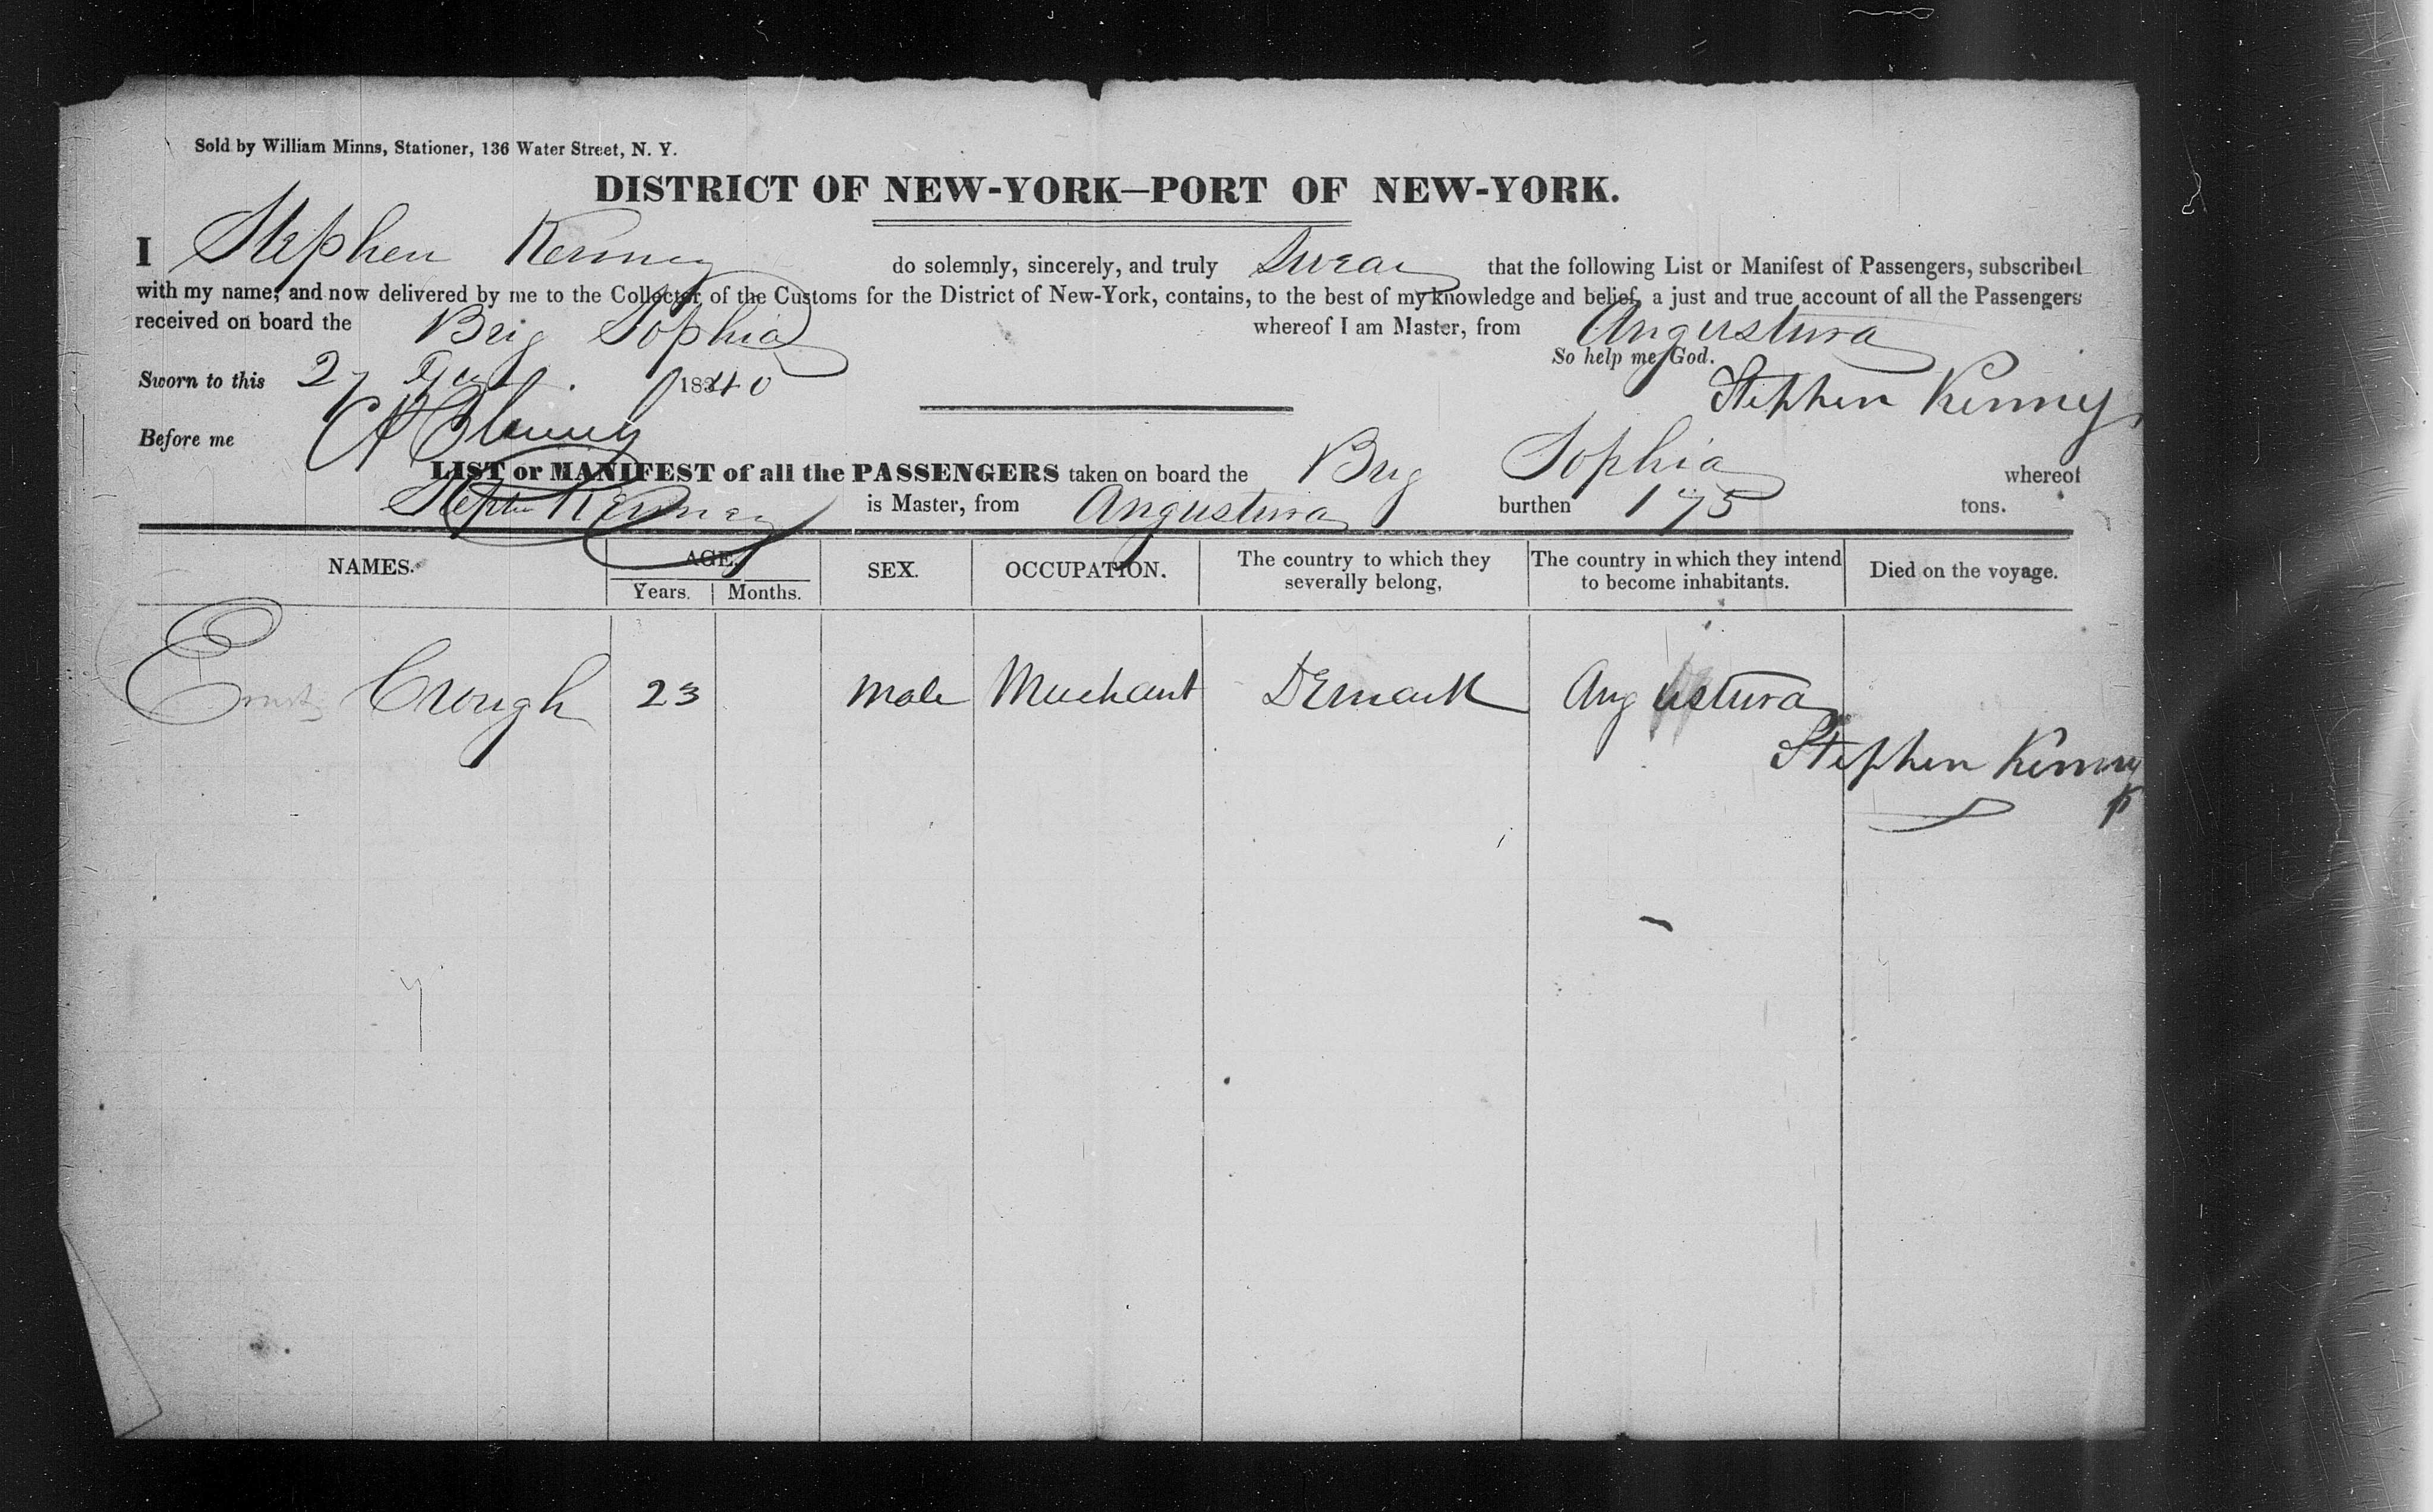 Sold by William Minns, Stationer, 136 Water Street, N. Y.
DISTRICT OF NEW-YORK—PORT OF NEW-YORK.
I Stephen Kenney do solemnly, sincerely, and truly Swear that the following List or Manifest of Passengers, subscribed
with my name, and now delivered by me to the Collector of the Customs for the District of New-York, contains, to the best of my knowledge and belief, a just and true account of all the Passengers
received on board the Brig Sophia whereof I am Master, from Angustura
So help me God.
Sworn to this 27 1840
Stephen Kenney
Before me
LIST or MANIFEST of all the PASSENGERS taken on board the Brig Sophia whereof
Stephen Kenney is Master, from Angustura burthen 175 tons.
NAMES. AGE. SEX. OCCUPATION. The country to which they severally belong, The country in which they intend to become inhabitants. Died on the voyage.
Years. Months.
Ernst Crough 23 Male Merchant DEmark Angustura
Stephen Kenney